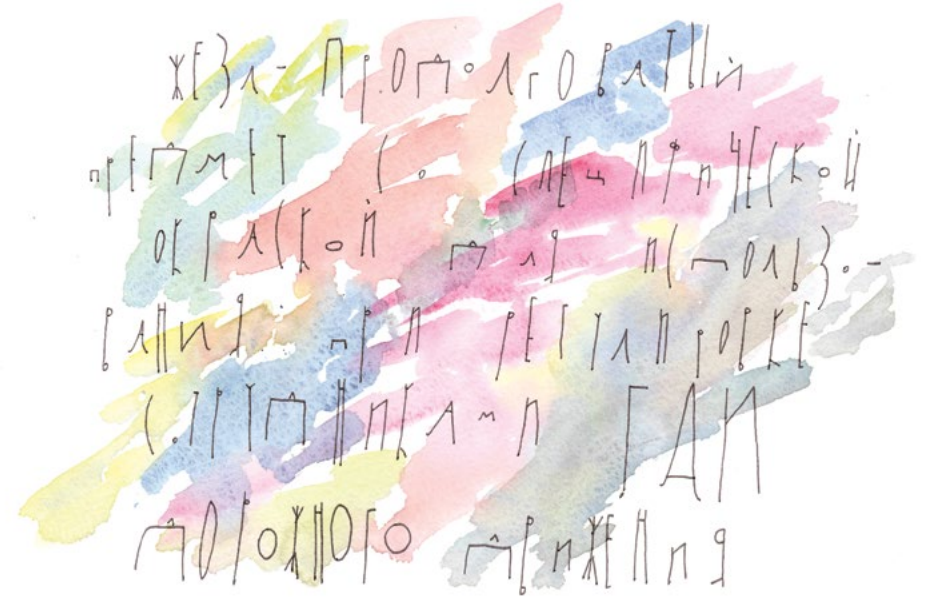 ЖЕЗЛ - ПРОДОЛГОВАТЫЙ
ПРЕДМЕТ СО СПЕЦИФИЧЕСКОЙ
ОКРАСКОЙ ДЛЯ ИСПОЛЬЗО-
ВАНИЯ ПРИ РЕГУЛИРОВКЕ
СОТРУДНИКАМИ ГАИ
ДОРОЖНОГО ДВИЖЕНИЯ